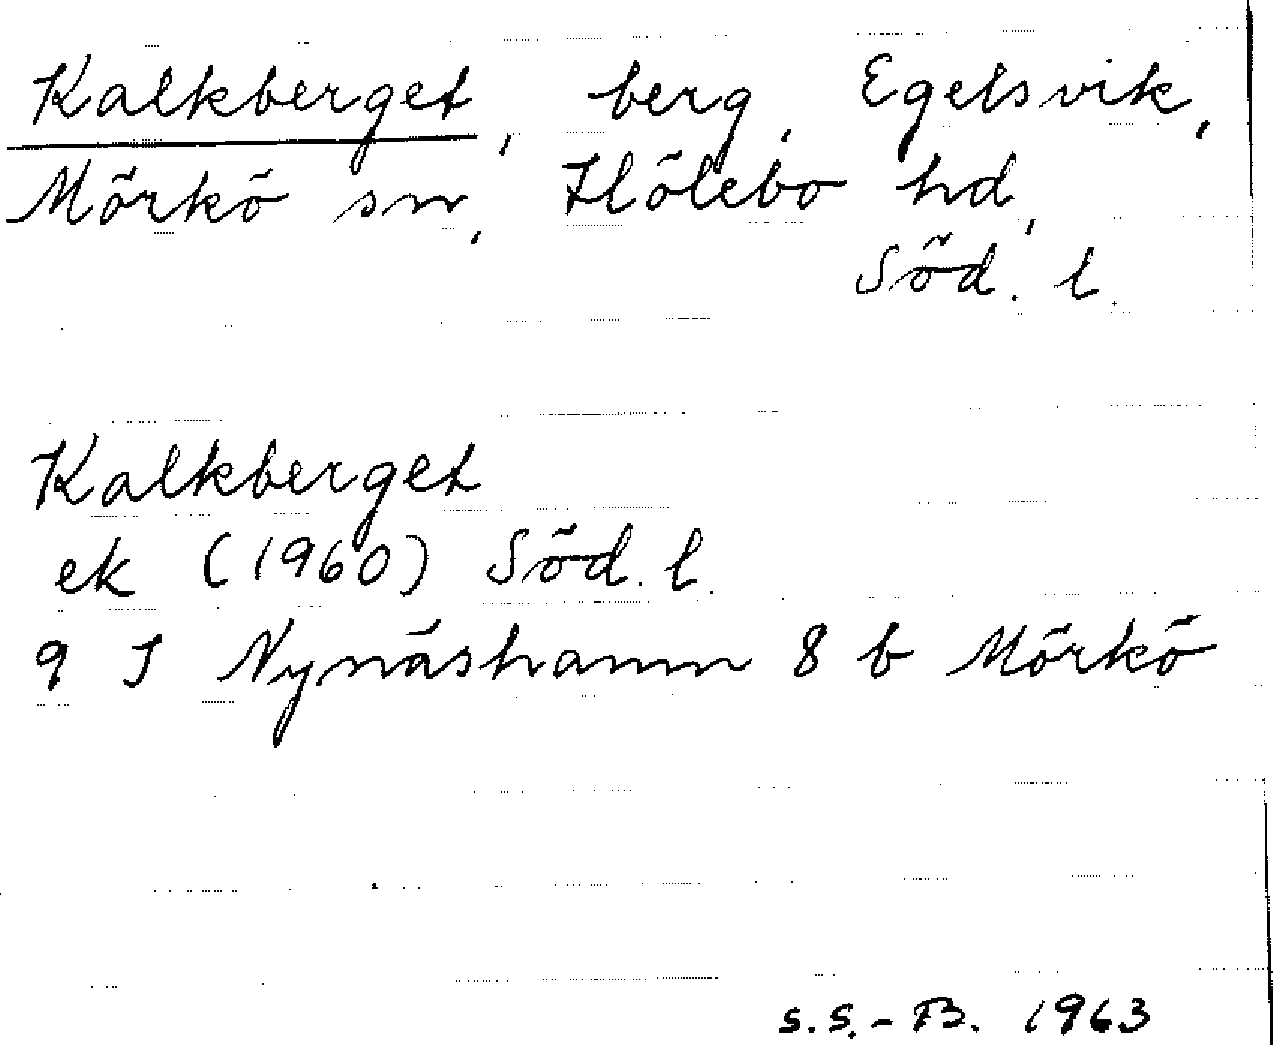 Kalkberget, berg, Egelsvik,
Mörkö sn, Hölebo hd,
Söd. l.
Kalkberget
ek (1960) Söd. l.
9 I Nynäshamn 8 b Mörkö
S.S.-B. 1963